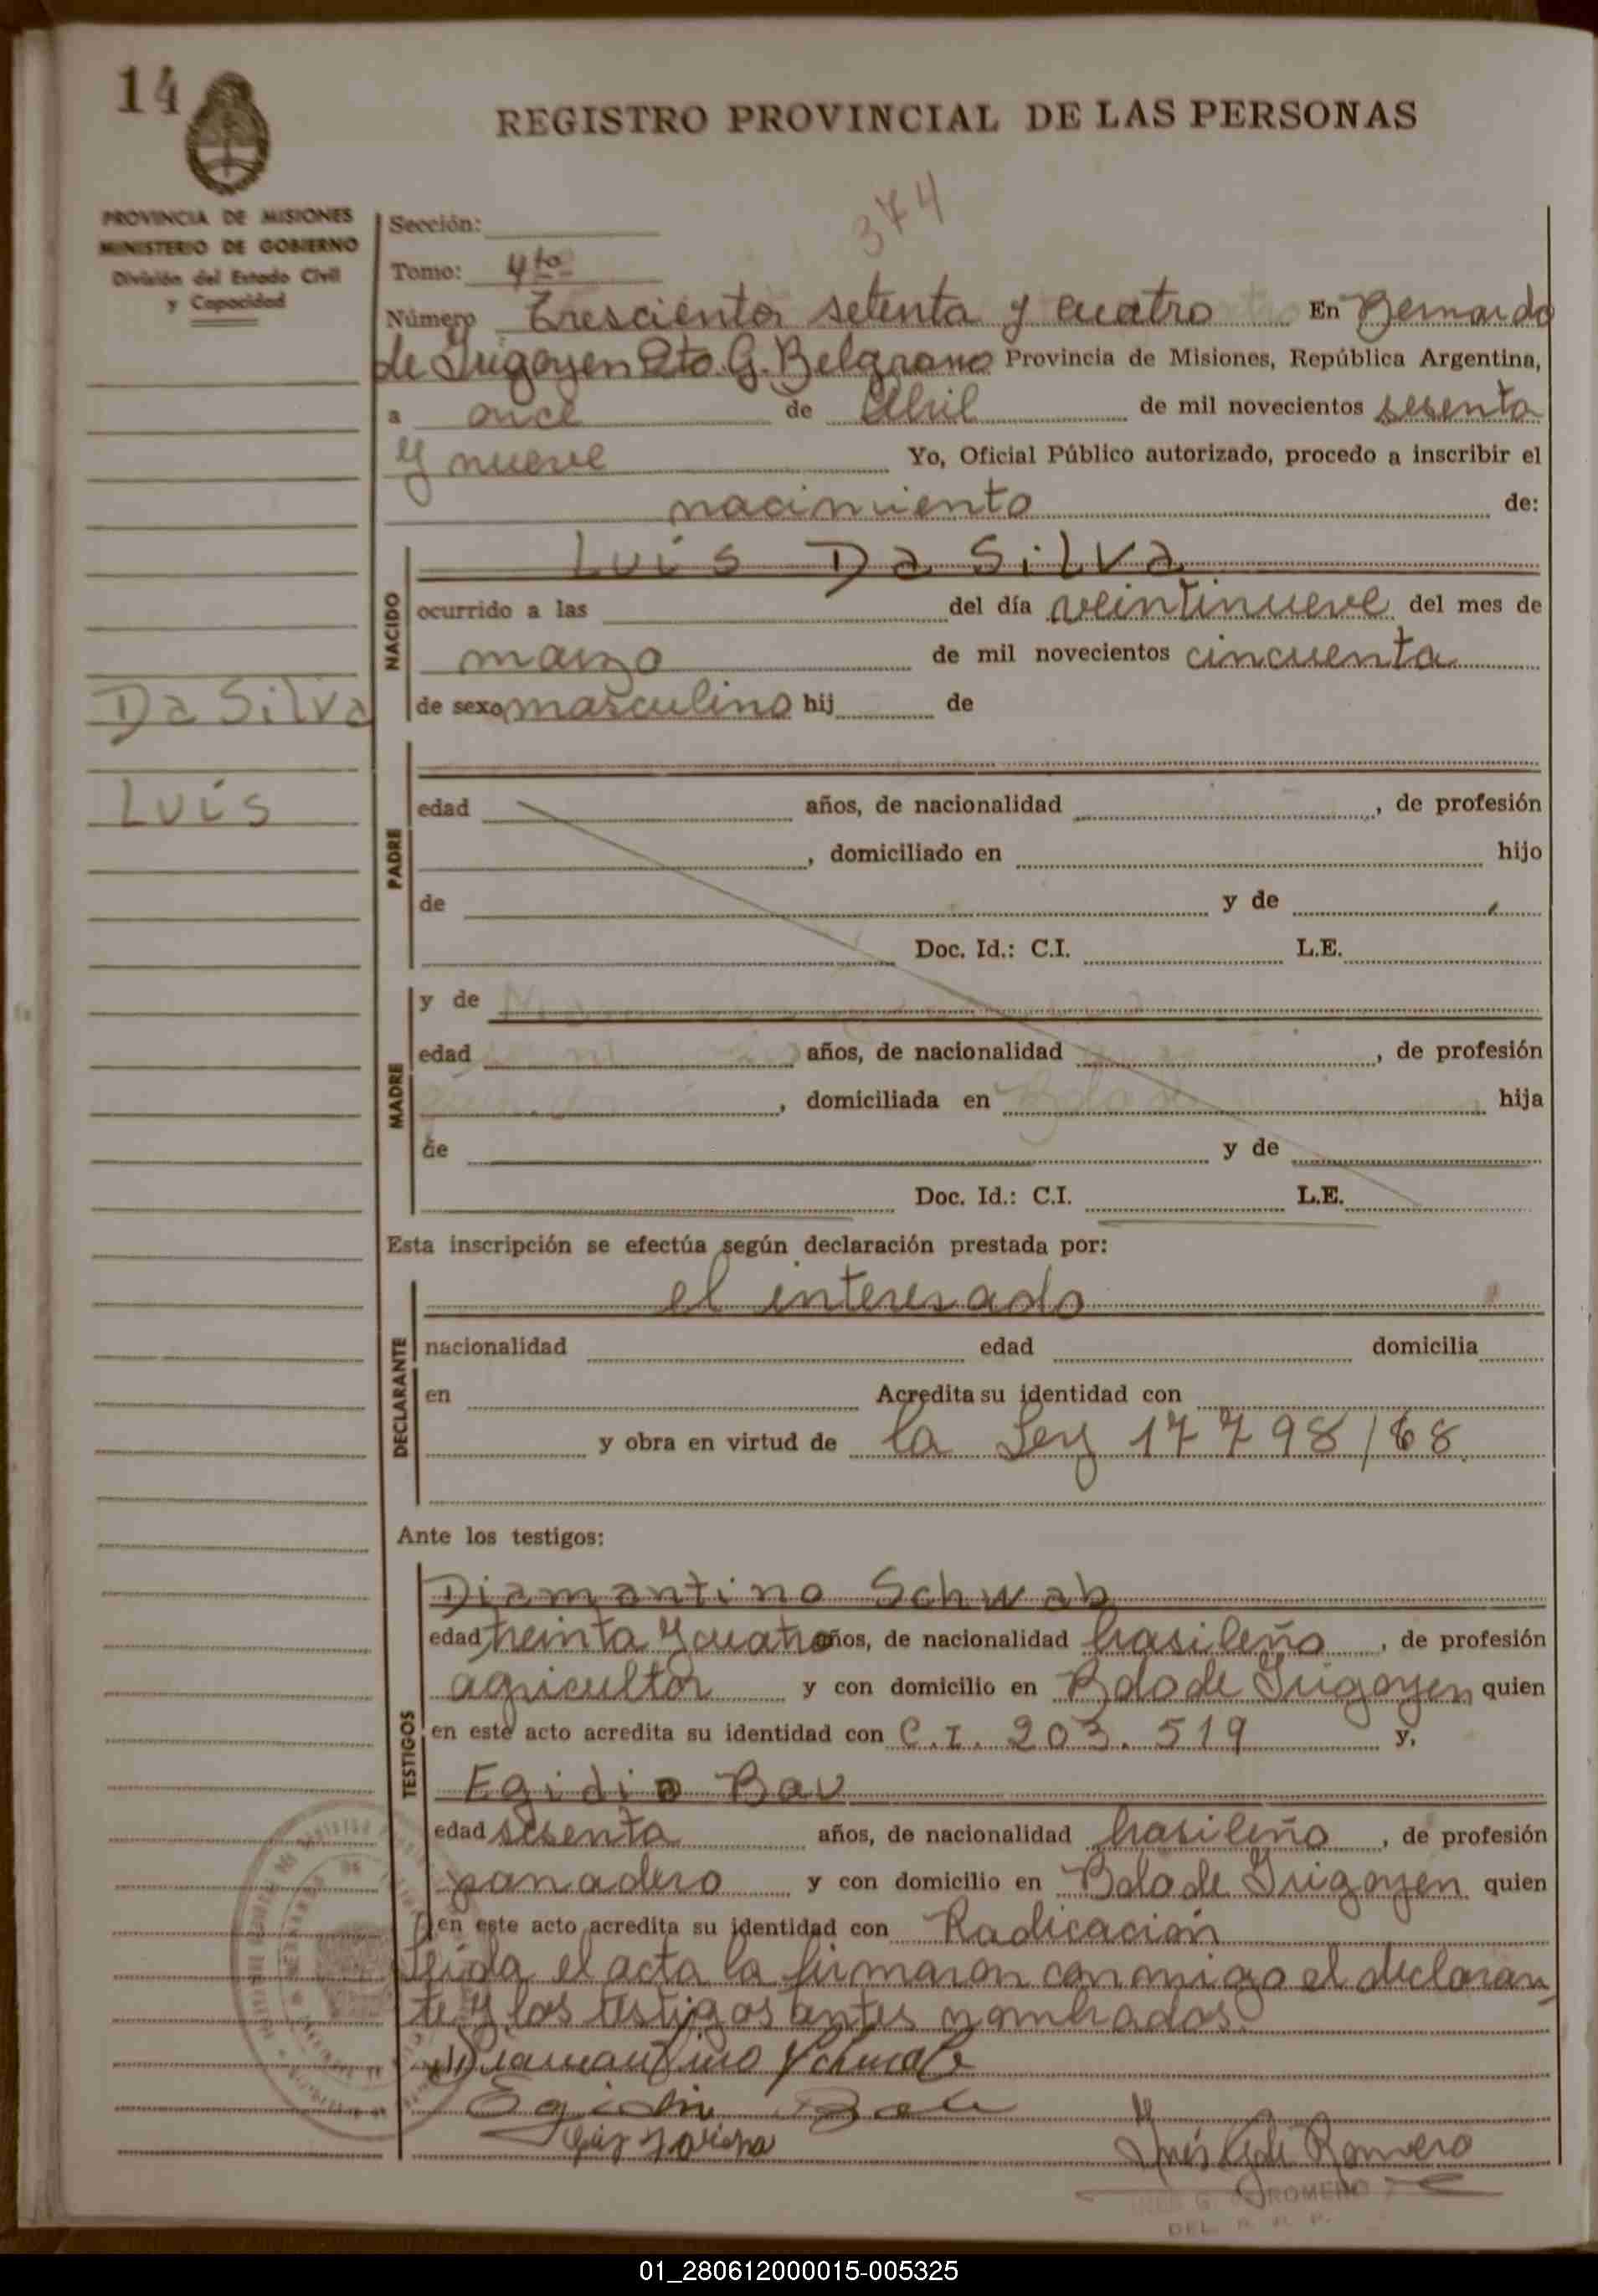 14
REGISTRO PROVINCIAL DE LAS PERSONAS
374
PROVINCIA DE MISIONES
MINISTERIO DE GOBIERNO
División del Estado Civil
y Capacidad
Sección:
Tomo: 4to
Número Tresciento setenta y cuatro En Bernardo
de Irigoyen Dto. G. Belgrano Provincia de Misiones, República Argentina,
a once de Abril de mil novecientos sesenta
y nueve Yo, Oficial Público autorizado, procedo a inscribir el
nacimiento de:
NACIDO
Luis Da Silva
ocurrido a las del día veintinueve del mes de
marzo de mil novecientos cincuenta
de sexo masculino hij de
Da Silva
Luis
PADRE
edad años, de nacionalidad , de profesión
, domiciliado en hijo
de y de
Doc. Id.: C.I. L.E.
MADRE
y de
edad años, de nacionalidad , de profesión
, domiciliada en hija
de y de
Doc. Id.: C.I. L.E.
Esta inscripción se efectúa según declaración prestada por:
DECLARANTE
el interesado
nacionalidad edad domicilia
en Acredita su identidad con
y obra en virtud de la Ley 17798/68
Ante los testigos:
TESTIGOS
Diamantino Schwab
edad treinta y cuatro años, de nacionalidad brasileño, de profesión
agricultor y con domicilio en Bdo de Irigoyen quien
en este acto acredita su identidad con C.I. 203.519 y,
Egidio Bau
edad sesenta años, de nacionalidad brasileño, de profesión
panadero y con domicilio en Bdo de Irigoyen quien
en este acto acredita su identidad con Radicación
Leida el acta la firmaron conmigo el declaran
te y los testigos antes nombrados.
Diamantino Schwab
Egidio Bau
Inés G. de Romero
ROMERO
DEL. R. P. P.
01_280612000015-005325